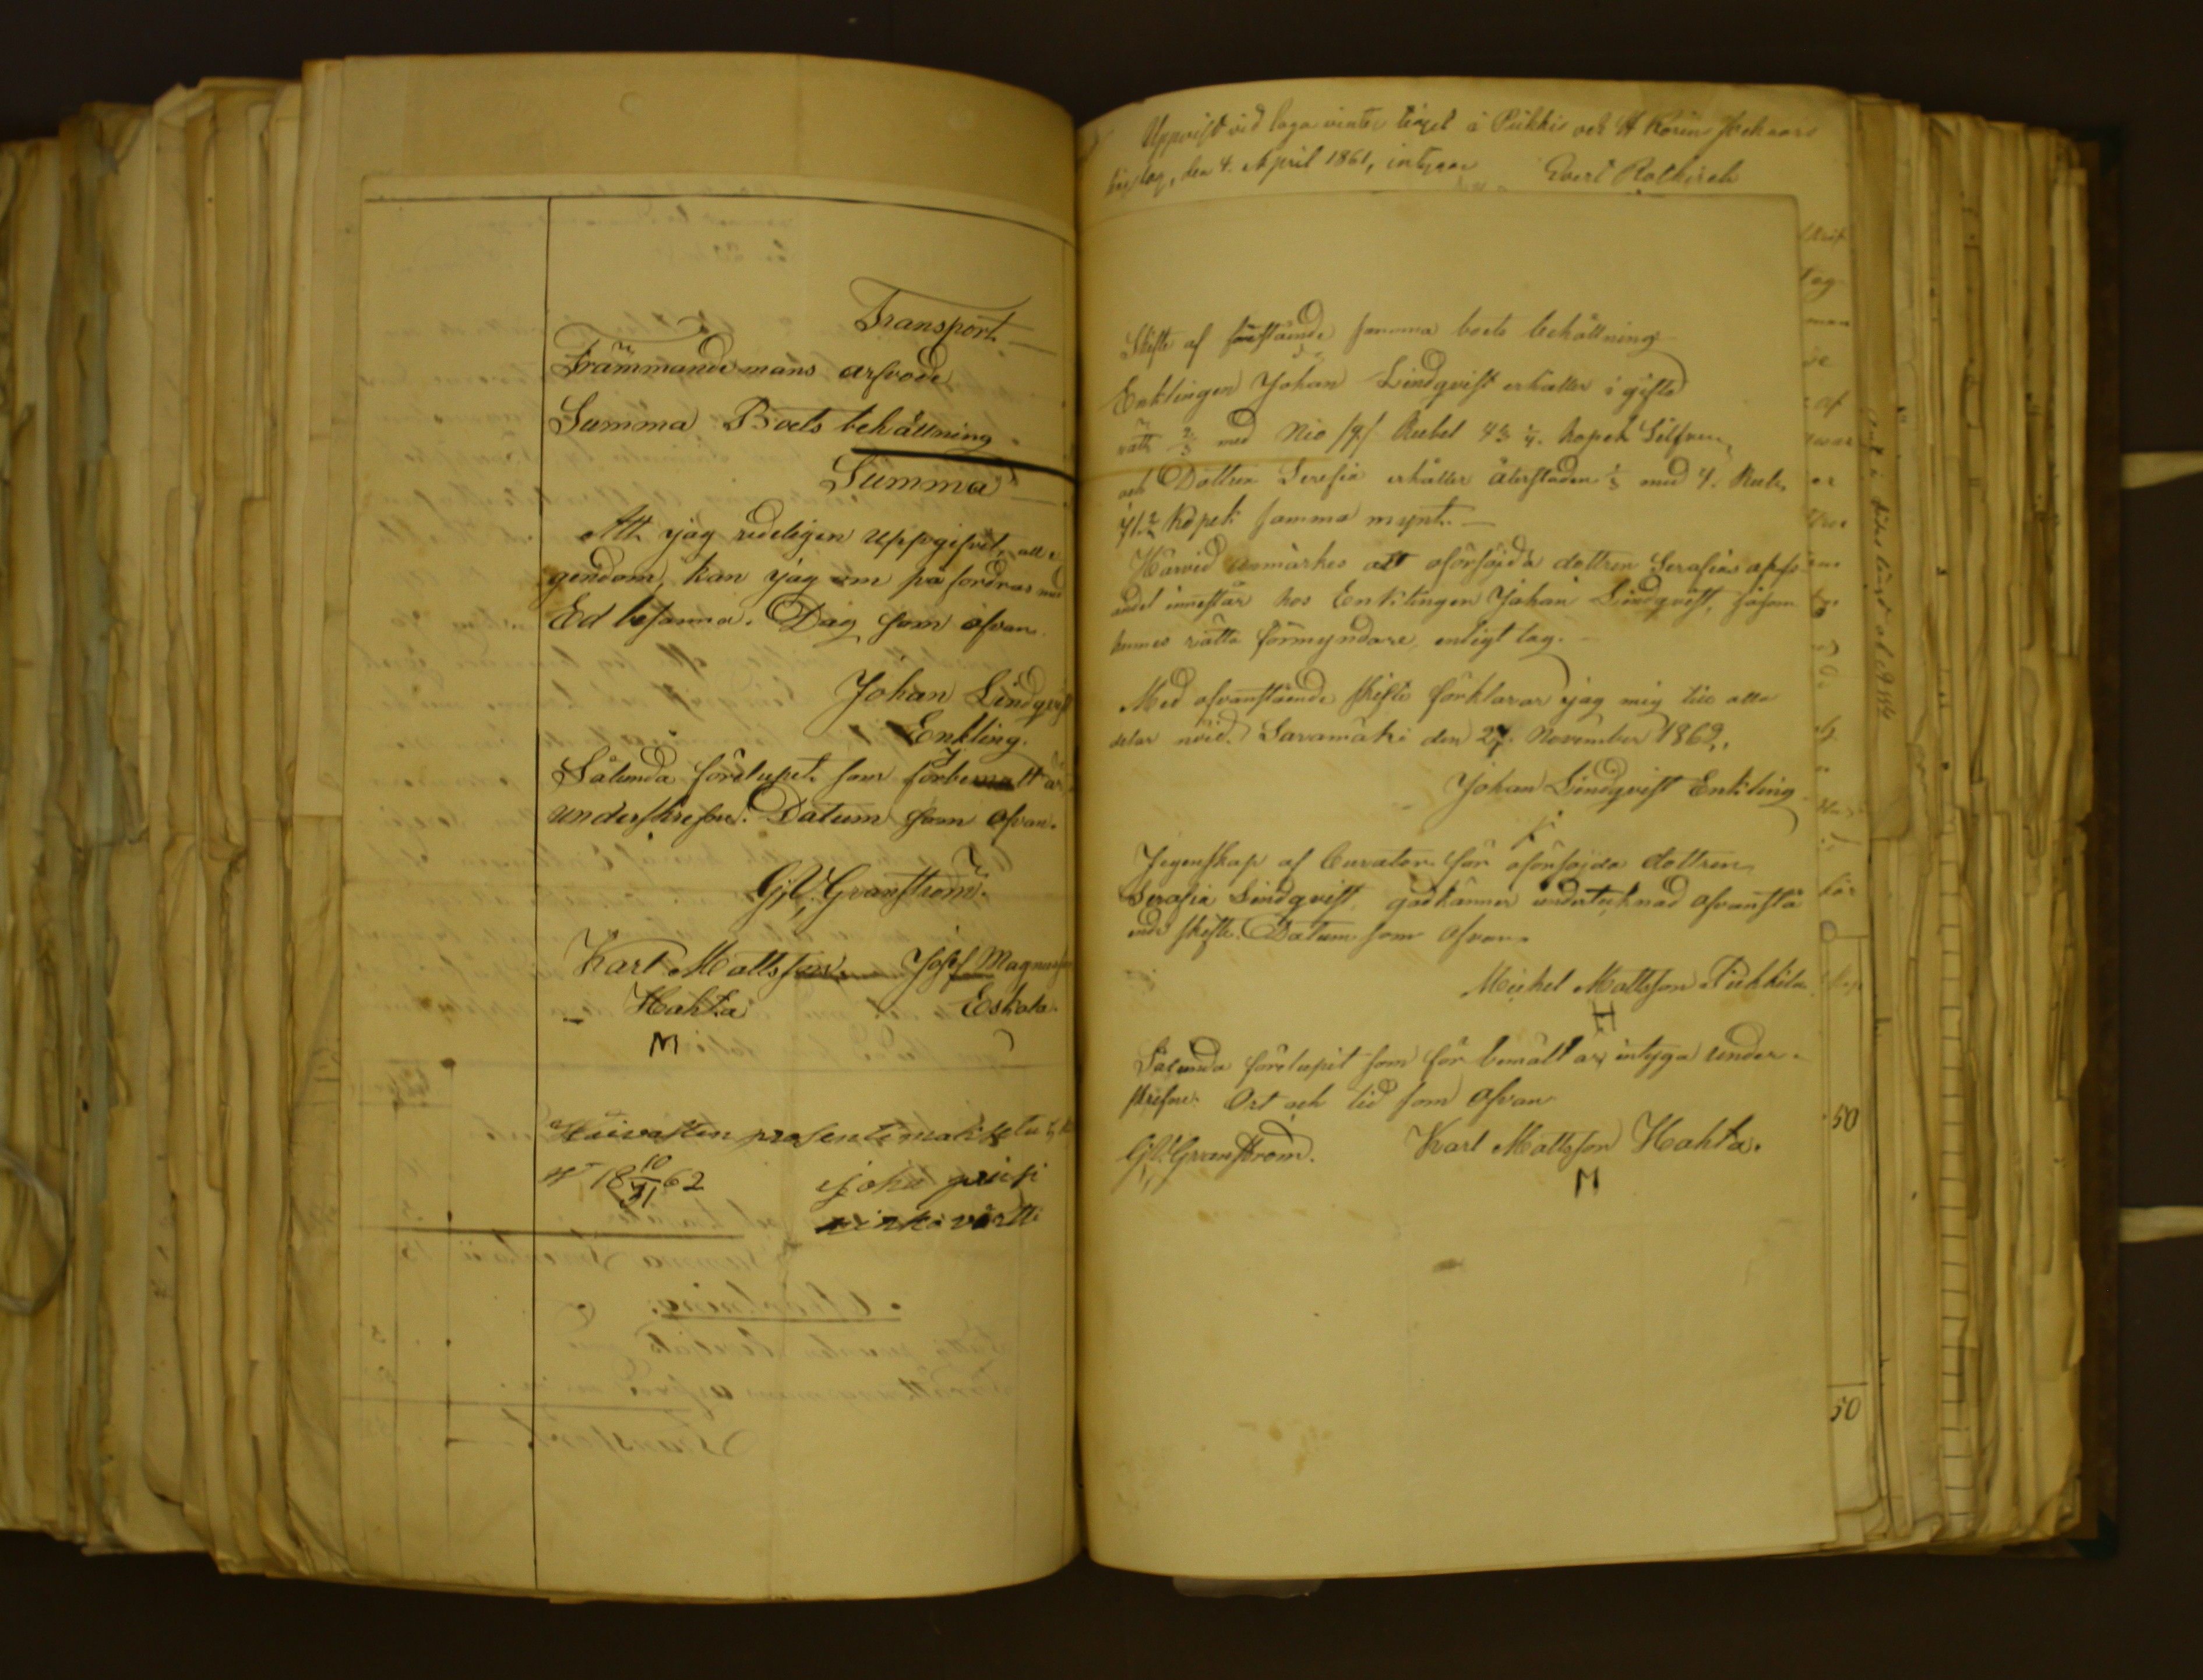 Transport.
Främmande mans arfvode
Summa Boets behållning
Summa
Att jag redeligen uppgifvit, all e
gendom, kan jag om på fordras med
Ed besanna. Dag som ofvan.
Johan Lindqvist
Enkling.
Sålunda förelupet som förbemält är
underskrefne. Datum som ofvan.
G. V. Granström.
Karl Mattsson Josef Magnusson
Hahka Eskola.
M
18 10/31 62
Uppvist vid laga vinter tinget å Piikkis och St Karins Socknars
tingslag, den 4. April 1861, intygar Evert Rotkirch
Skifte af förestående samma boets behållning
Enklingen Johan Lindqvist erhåller i gifto
rätt 2/3 med Nio /9/ Rubel kopek Silfver,
och Dottren Serafia erhåller återstoden 1/3 med 4. Rub.
71.2 Kopek samma mynt.
Härvid anmärkes att oförsöjda dottren Serafias arfs
andel innestår hos Enklingen Johan Lindqvist, såsom
hennes rätta förmyndare, enligt lag.
Med ofvanstående skifte förklarar jag mig till alla
delar nöid. Savamäki den 27. November 1862.
Johan Lindqvist Enkling
I egenskap af Curator för oförsöjda dottren
Serafia Lindqvist, godkänner undertecknad ofvanstå
ende skifte. Datum som ofvan.
Mickel Mattsson Pukkila
H
Sålunda förelupit som för bemält är, intyga under-
skrefne. Ort och tid som ofvan
G. V. Granström. Karl Mattsson Hahka.
M
50
50